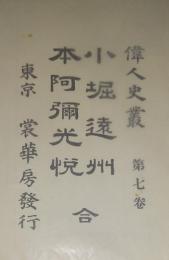 偉人史叢 第七巻
小堀遠州
本阿彌光悦 合
東京 裳華房發行